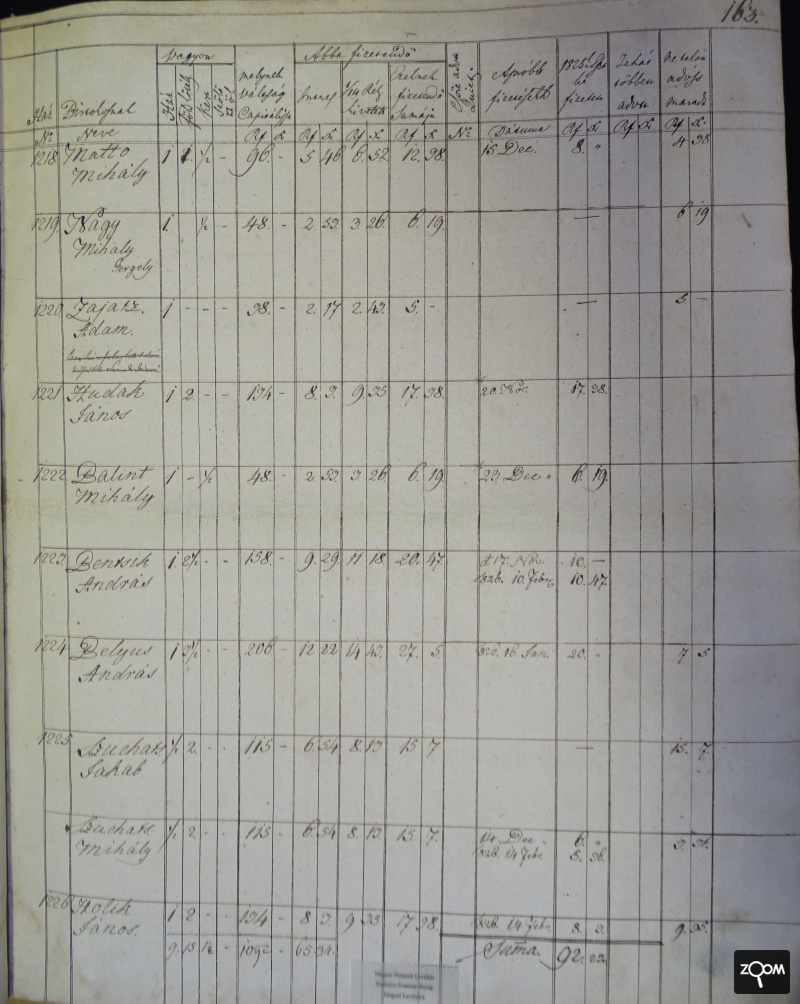 163.
Ház Birtokosnak Vagyon melynek Abba fizetendő Apróbb 1825 Zehát
Ház Föld Kert Váltság Interes 1/14 Rész Ezeknek fizetendő fizetések többen adóss
Capitálissa Sumája fizetett advu maradt
No Neve Rf X Rf X Rf X Rf X No Dátuma Rf X Rf X Rf X
1218 Matto 1 1 1/2 - 96. - 5 46 6. 52 12. 38. 15 Dec. 8. " 4 38
Mihály
1219. Nagy 1. 1/2 - 48. - 2. 53. 3. 26. 6. 19. — 6 19
Mihaly
Gergely
1220 Zajatz. 1 - - - 38. - 2. 17 2. 43. 5. - — 5 -
Adam.
1221 Hudak 1 2. - - 134 - 8. 3. 9. 35 17. 38. 20. Nov. 17. 38.
János
1222. Balint 1 - 1/2 48. - 2. 53. 3. 26. 6. 19. 23. Dec. " 6. 19.
Mihály
1223. Bentsik 1 2 1/2 - - 158. - 9. 29 11 18. 20. 47. d. 17. Nov. 10. —
András 826. 10. Febr. 10. 47.
1224 Belyus 1 3 1/2 - - 206 - 12 22 14 43. 27. 5. 826. 16 Jan. 20. " 7 5
András
1225 Buchats 1/2 2. - - 115 - 6. 54 8. 13 15 7 — 15. 7.
Jakab.
Buchats 1/2 2. - - 115 - 6. 54 8. 13. 15. 7. 14. Dec. " 6. "
Mihály 826. 14 Febr. 5. 36. 3. 31.
1226 Holik 1 2 - - 134 - 8 3. 9 35 17. 38. 826. 14 Febr. 8. 3. 9. 35.
János.
9. 15 1 1/2 - 1092 - 65 34. Suma. 92. 22.
ZOOM